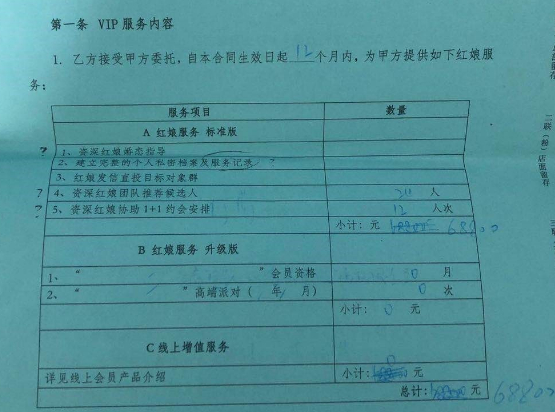 第一条 VIP服务内容
1. 乙方接受甲方委托，自本合同生效日起 12 个月内，为甲方提供如下红娘服
务：
服务项目 数量
A 红娘服务 标准版
? 1、资深红娘婚恋指导
2、建立完整的个人私密档案及服务记录 ?
3、红娘发信直投目标对象群
? 4、资深红娘团队推荐候选人 24 人
? 5、资深红娘协助1+1约会安排 12 人次
小计：元 68800
B 红娘服务 升级版
1、“ ”会员资格 0 月
2、“ ”高端派对（ 年/ 月） 0 次
小计： 0 元
C 线上增值服务
详见线上会员产品介绍 小计： 0 元
总计： 元 68800
二联
店面留存